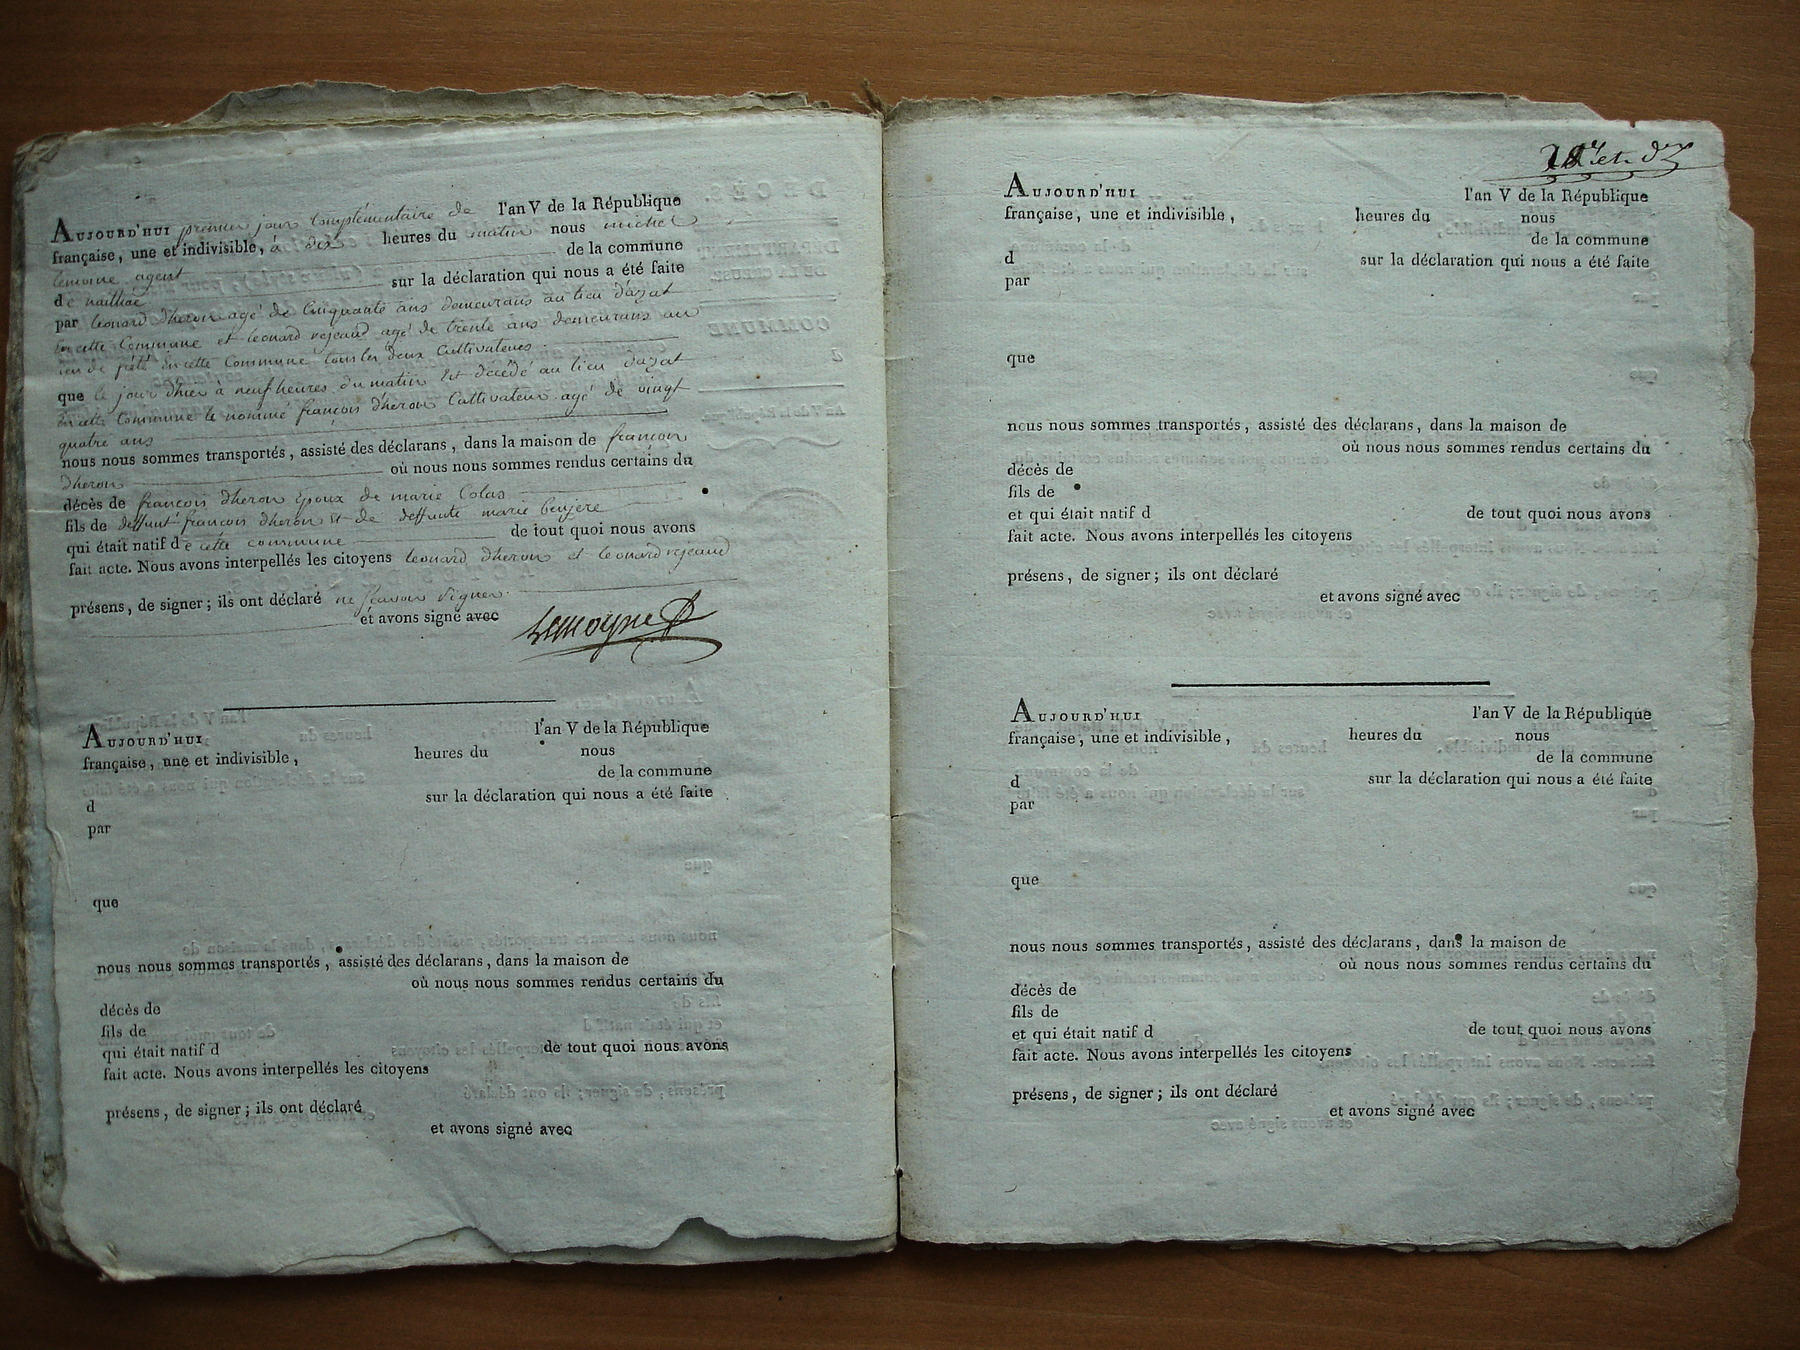 AUJOURD'HUI premier jour Complémentaire de l'an V de la République
française, une et indivisible, à dix heures du matin nous michel
lemoine agent de la commune
de naillac sur la déclaration qui nous a été faite
par leonard dheron agé de Cinquante ans demeurans au lieu d'azat
en cette Commune et leonard rejeaud agé de trente ans demeurans au
lieu de en cette Commune tous les deux Cultivateurs
que le jour dhier à neuf heures du matin Est décédé au lieu dazat
en cette Commune le nommé françois dheron Cultivateur agé de vingt
quatre ans
nous nous sommes transportés, assisté des déclarans, dans la maison de françois
dheron où nous nous sommes rendus certains du
décès de françois dheron Epoux de marie Colas
fils de deffunt françois dheron et de deffunte marie
qui était natif de cette commune de tout quoi nous avons
fait acte. Nous avons interpellés les citoyens leonard dheron et leonard rejeaud
présens, de signer; ils ont déclaré ne scavoir signer
et avons signé avec Lemoyne
AUJOURD'HUI l'an V de la République
française, une et indivisible, heures du nous
de la commune
d sur la déclaration qui nous a été faite
par
que
nous nous sommes transportés, assisté des déclarans, dans la maison de
où nous nous sommes rendus certains du
décès de
fils de
qui était natif d de tout quoi nous avons
fait acte. Nous avons interpellés les citoyens
présens, de signer; ils ont déclaré
et avons signé avec
AUJOURD'HUI l'an V de la République
française, une et indivisible, heures du nous
de la commune
d sur la déclaration qui nous a été faite
par
que
nous nous sommes transportés, assisté des déclarans, dans la maison de
où nous nous sommes rendus certains du
décès de
fils de
et qui était natif d de tout quoi nous avons
fait acte. Nous avons interpellés les citoyens
présens, de signer; ils ont déclaré
et avons signé avec
AUJOURD'HUI l'an V de la République
française, une et indivisible, heures du nous
de la commune
d sur la déclaration qui nous a été faite
par
que
nous nous sommes transportés, assisté des déclarans, dans la maison de
où nous nous sommes rendus certains du
décès de
fils de
et qui était natif d de tout quoi nous avons
fait acte. Nous avons interpellés les citoyens
présens, de signer; ils ont déclaré
et avons signé avec